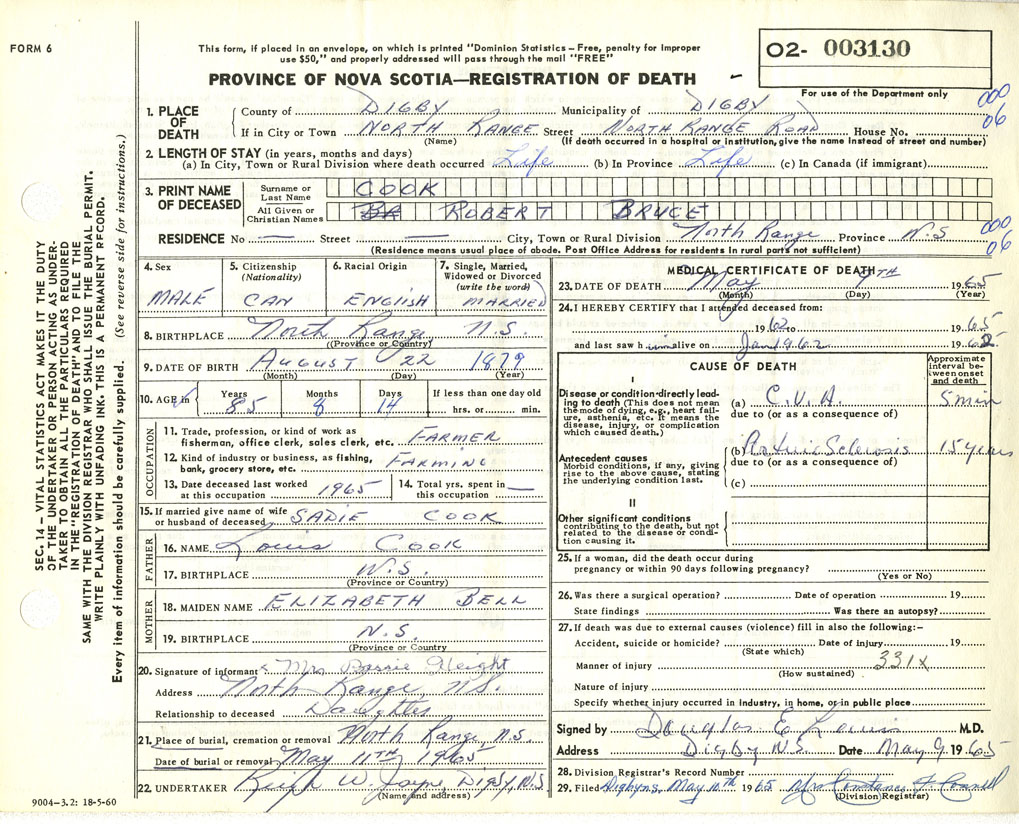 FORM 6
This form, if placed in an envelope, on which is printed "Dominion Statistics – Free, penalty for improper
use $50," and properly addressed will pass through the mail "FREE"
O2- 003130
For use of the Department only
PROVINCE OF NOVA SCOTIA—REGISTRATION OF DEATH
000
06
1. PLACE OF DEATH
County of DIGBY Municipality of DIGBY
If in City or Town NORTH RANGE Street NORTH RANGE ROAD House No.
(Name) (If death occurred in a hospital or institution, give the name instead of street and number)
2. LENGTH OF STAY (in years, months and days)
(a) In City, Town or Rural Division where death occurred Life (b) In Province Life (c) In Canada (if immigrant)
3. PRINT NAME OF DECEASED
Surname or Last Name COOK
All Given or Christian Names ROBERT BRUCE
000
06
RESIDENCE No — Street — City, Town or Rural Division North Range Province N.S
(Residence means usual place of abode. Post Office Address for residents in rural parts not sufficient)
4. Sex MALE
5. Citizenship (Nationality) CAN
6. Racial Origin ENGlISH
7. Single, Married, Widowed or Divorced (write the word) MARRIED
8. BIRTHPLACE North Range N.S.
(Province or Country)
9. DATE OF BIRTH AUGUST 22 1879
(Month) (Day) (Year)
10. AGE in Years 85 Months 8 Days 14 If less than one day old hrs. or min.
OCCUPATION
11. Trade, profession, or kind of work as
fisherman, office clerk, sales clerk, etc. FARMER
12. Kind of industry or business, as fishing,
bank, grocery store, etc. FARMING
13. Date deceased last worked
at this occupation 1965
14. Total yrs. spent in
this occupation —
15. If married give name of wife
or husband of deceased SADIE COOK
FATHER
16. NAME Louis COOK
17. BIRTHPLACE N.S.
(Province or Country)
MOTHER
18. MAIDEN NAME ELIZABETH BELL
19. BIRTHPLACE N.S.
(Province or Country)
20. Signature of informant Mrs.
Address North Range, N.S.
Relationship to deceased Daughter
21. Place of burial, cremation or removal North Range, N.S.
Date of burial or removal May 11TH 1965
22. UNDERTAKER W. Jayne, Digby, N.S
(Name and address)
9004–3.2: 18-5-60
MEDICAL CERTIFICATE OF DEATH
23. DATE OF DEATH May 7TH 1965
(Month) (Day) (Year)
24. I HEREBY CERTIFY that I attended deceased from:
1962 to 1965
and last saw him alive on Jan 1962 19
CAUSE OF DEATH
Approximate interval between onset and death
I
Disease or condition directly leading to death (This does not mean
the mode of dying, e.g., heart failure, asthenia, etc. It means the
disease, injury, or complication
which caused death.)
(a) C.V.A. 5 min
due to (or as a consequence of)
Antecedent causes
Morbid conditions, if any, giving
rise to the above cause, stating
the underlying condition last.
(b) Sclerosis 15 years
due to (or as a consequence of)
(c)
II
Other significant conditions
contributing to the death, but not
related to the disease or condition causing it.
25. If a woman, did the death occur during
pregnancy or within 90 days following pregnancy?
(Yes or No)
26. Was there a surgical operation? Date of operation 19
State findings Was there an autopsy?
27. If death was due to external causes (violence) fill in also the following:–
Accident, suicide or homicide? Date of injury 19
(State which)
Manner of injury 331X
(How sustained)
Nature of injury
Specify whether injury occurred in industry, in home, or in public place
Signed by Douglas E Lewis M.D.
Address Digby N.S. Date May 9 1965
28. Division Registrar's Record Number
29. Filed May 10th 1965 Mrs Constance F Connell
(Division Registrar)
SEC. 14 – VITAL STATISTICS ACT MAKES IT THE DUTY
OF THE UNDERTAKER OR PERSON ACTING AS UNDERTAKER TO OBTAIN ALL THE PARTICULARS REQUIRED
IN THE "REGISTRATION OF DEATH" AND TO FILE THE
SAME WITH THE DIVISION REGISTRAR WHO SHALL ISSUE THE BURIAL PERMIT.
WRITE PLAINLY WITH UNFADING INK. THIS IS A PERMANENT RECORD.
Every item of information should be carefully supplied. (See reverse side for instructions.)